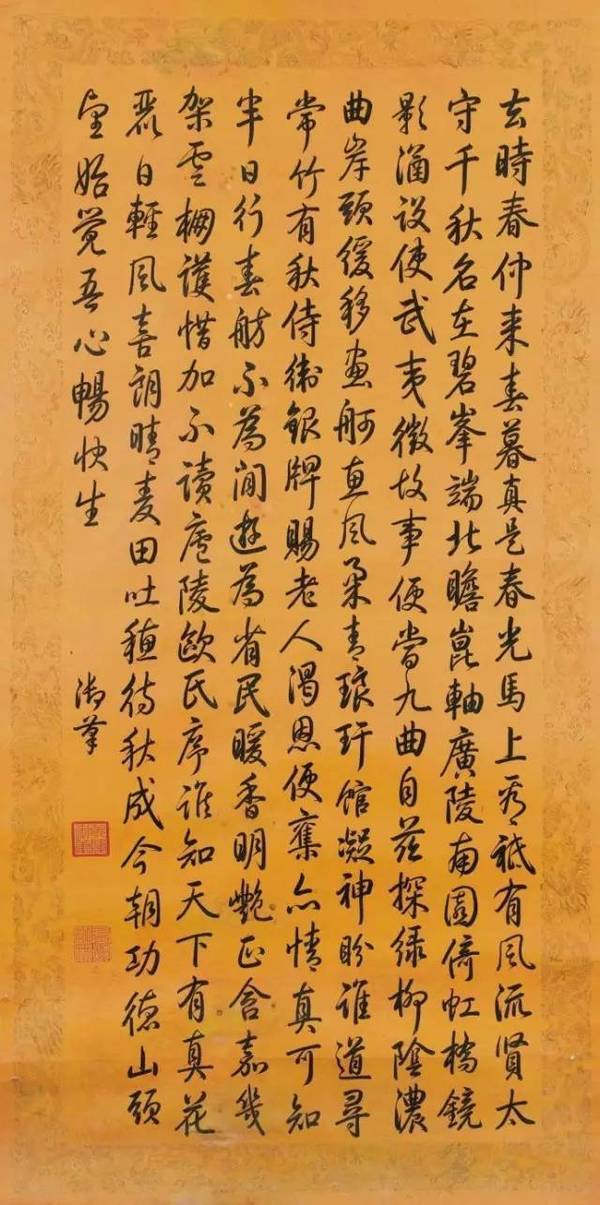 去時春仲来春暮真是春光馬上看祗有風流賢太
守千秋名在碧峯端北瞻崑軸廣陵南園倚虹橋鏡
影涵設使武夷徵故事便當九曲自茲探绿柳陰濃
曲岸頭緩移画舸恵風柔青琅玕館凝神盼誰道尋
常竹有秋侍衛銀牌賜老人渴恩便奮亦情真可知
半日行春舫不為閒遊為省民暖香明艷正含嘉幾
架雲棚護惜加不讀廬陵歐氏序誰知天下有真花
麗日輕風喜詡晴麦田吐穗待秋成今朝功德山頭
望始覺吾心暢快生
御筆